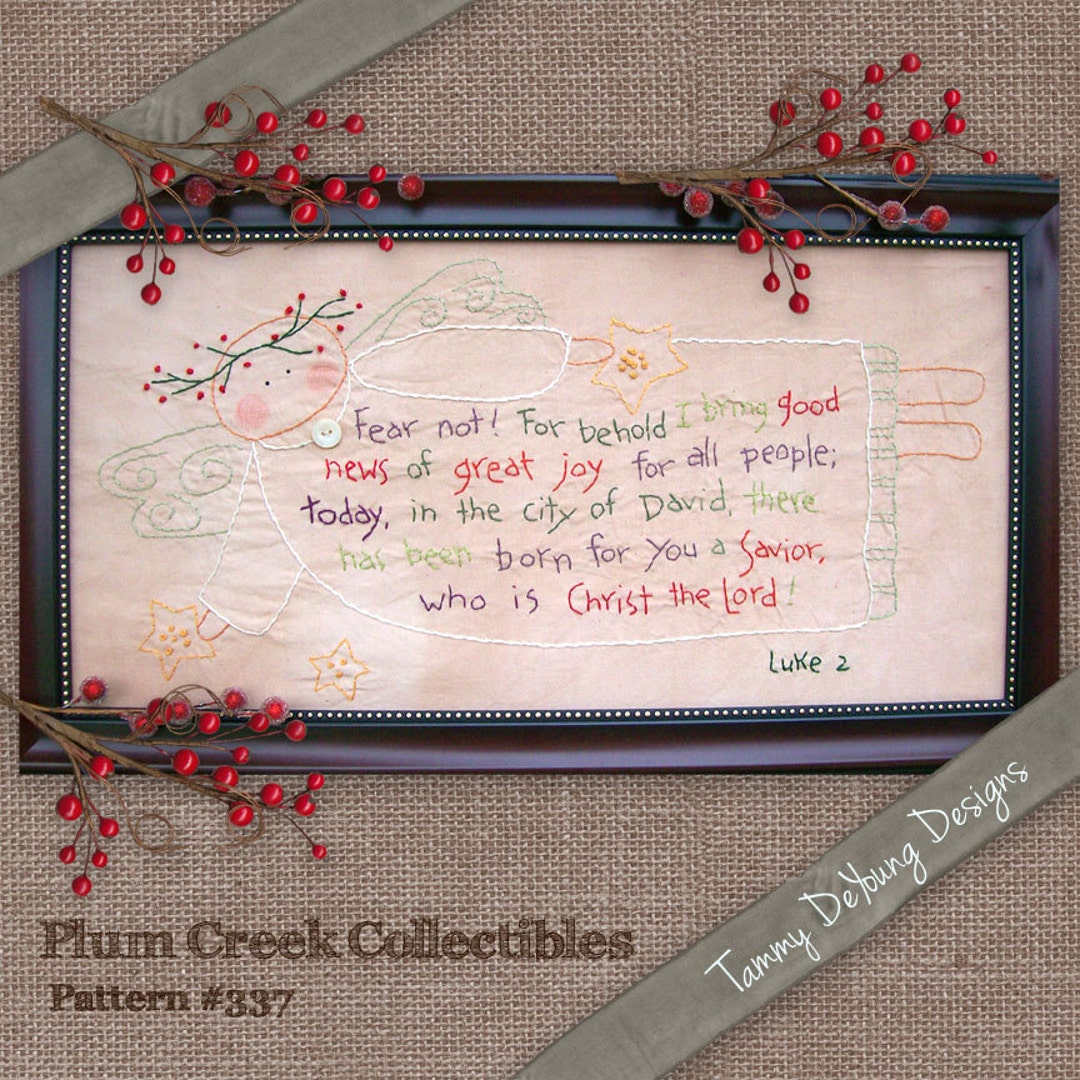 Fear not! For behold I bring good
news of great joy for all people;
today, in the city of David, there
has been born for you a Savior,
who is Christ the Lord!
Luke 2
Tammy DeYoung Designs
Plum Creek Collectibles
Pattern #337